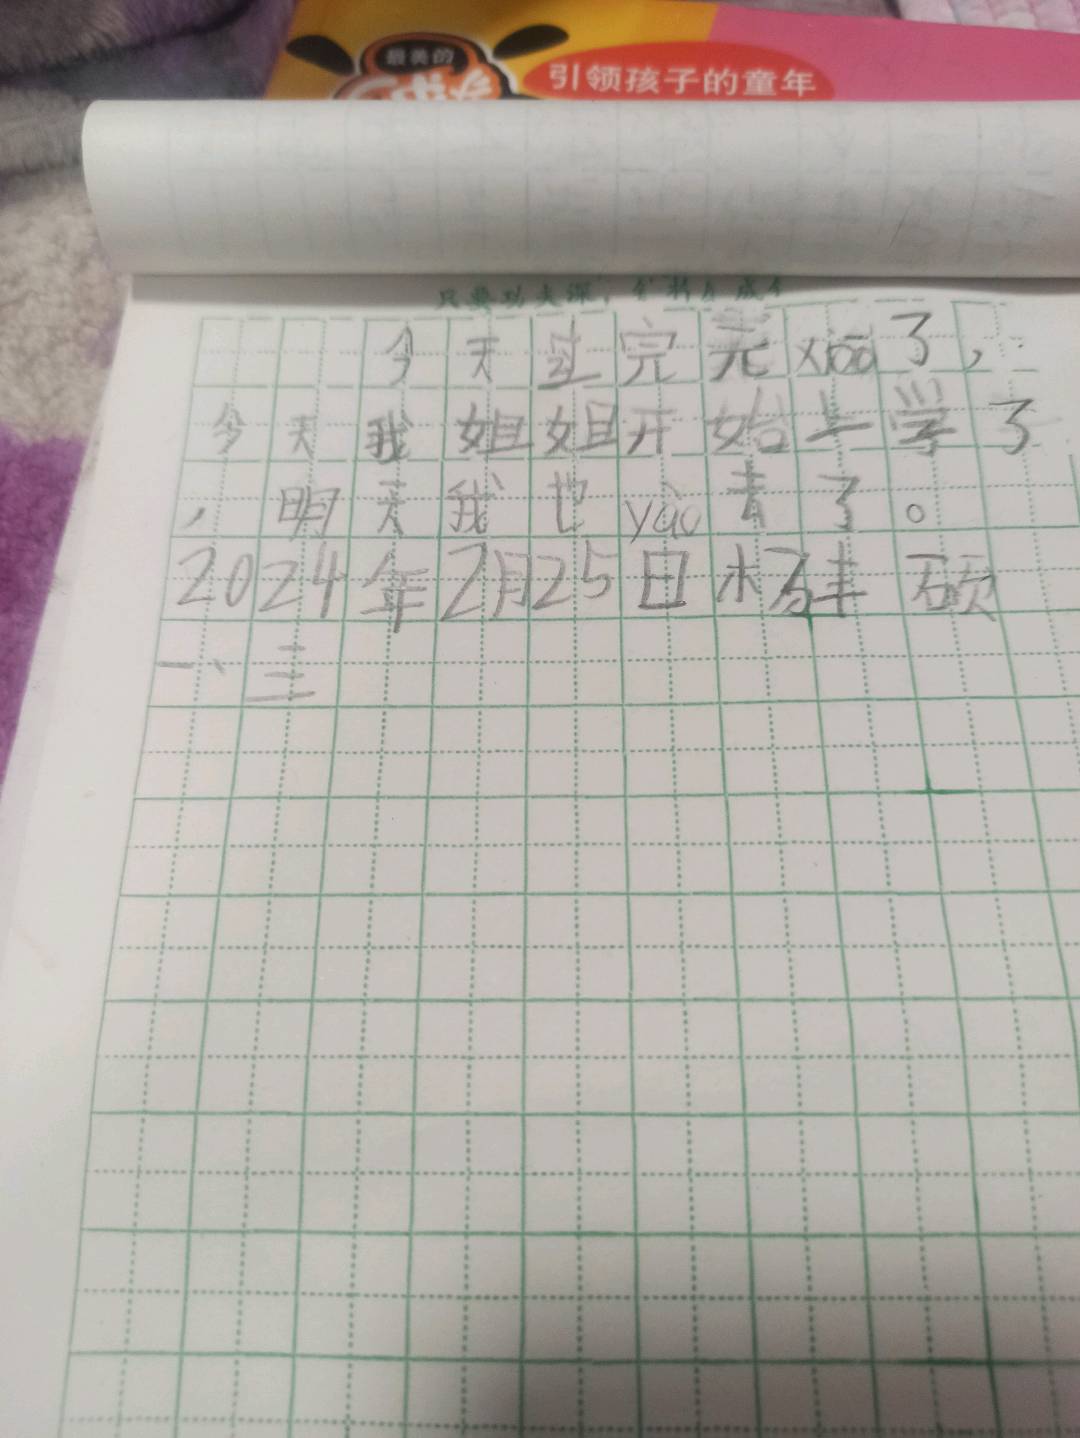 最美的
引领孩子的童年
只要功夫深,
今天过完元xiāo了,
今天我姐姐开始上学了
,明天我也yào青了。
2024年2月25日杨硕
一、三